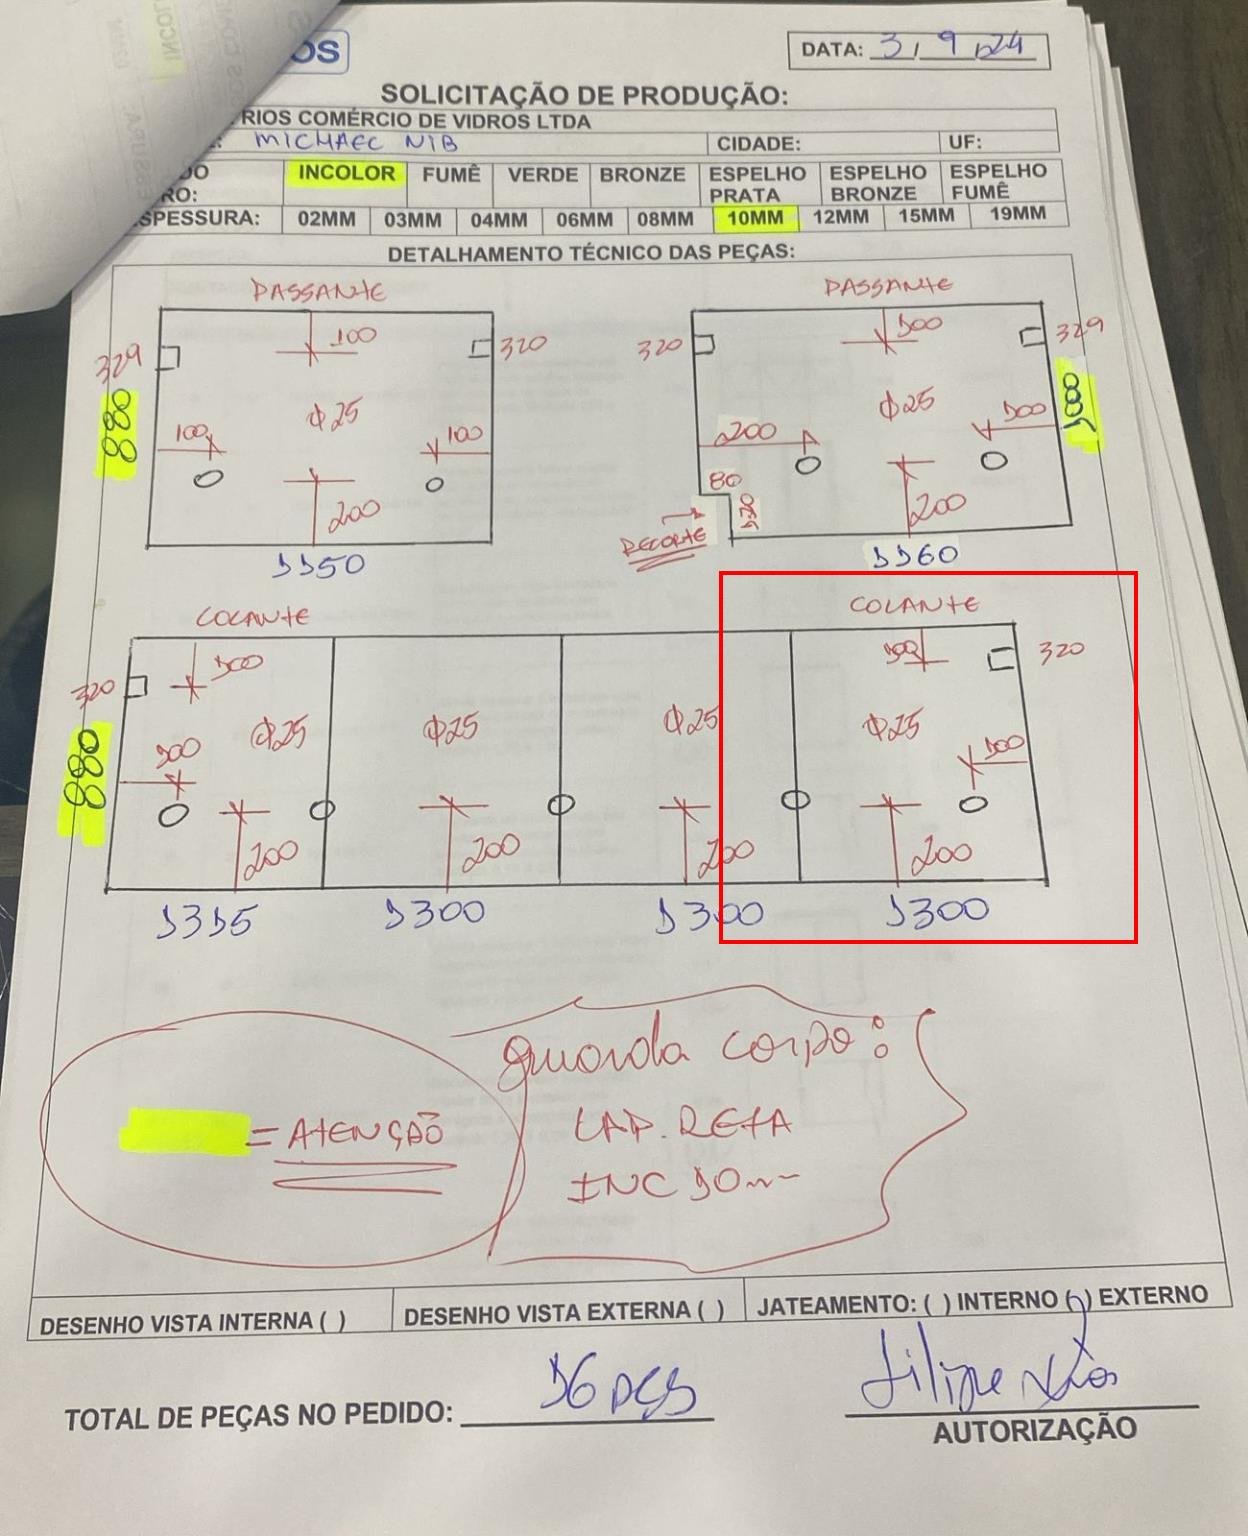 OS
DATA: 3, 9, 24
SOLICITAÇÃO DE PRODUÇÃO:
RIOS COMÉRCIO DE VIDROS LTDA
MICHAEL NIB CIDADE: UF:
DO INCOLOR FUMÊ VERDE BRONZE ESPELHO ESPELHO ESPELHO
RO: PRATA BRONZE FUMÊ
SPESSURA: 02MM 03MM 04MM 06MM 08MM 10MM 12MM 15MM 19MM
DETALHAMENTO TÉCNICO DAS PEÇAS:
PASSANTE
329 100 320
880
Φ25
100 100
200
1150
PASSANTE
320 100 329
1000
Φ25
200 100
80
120
RECORTE
200
1160
COLANTE
320 100
880
100 Φ25 Φ25 Φ25
200 200 200
1315 1300 1300
COLANTE
100 320
Φ25
100
200
1300
= ATENÇÃO
guarda corpo:
LAP. RETA
INC 10mm
DESENHO VISTA INTERNA ( ) DESENHO VISTA EXTERNA ( ) JATEAMENTO: ( ) INTERNO ( ) EXTERNO
TOTAL DE PEÇAS NO PEDIDO: 16 pçs
AUTORIZAÇÃO